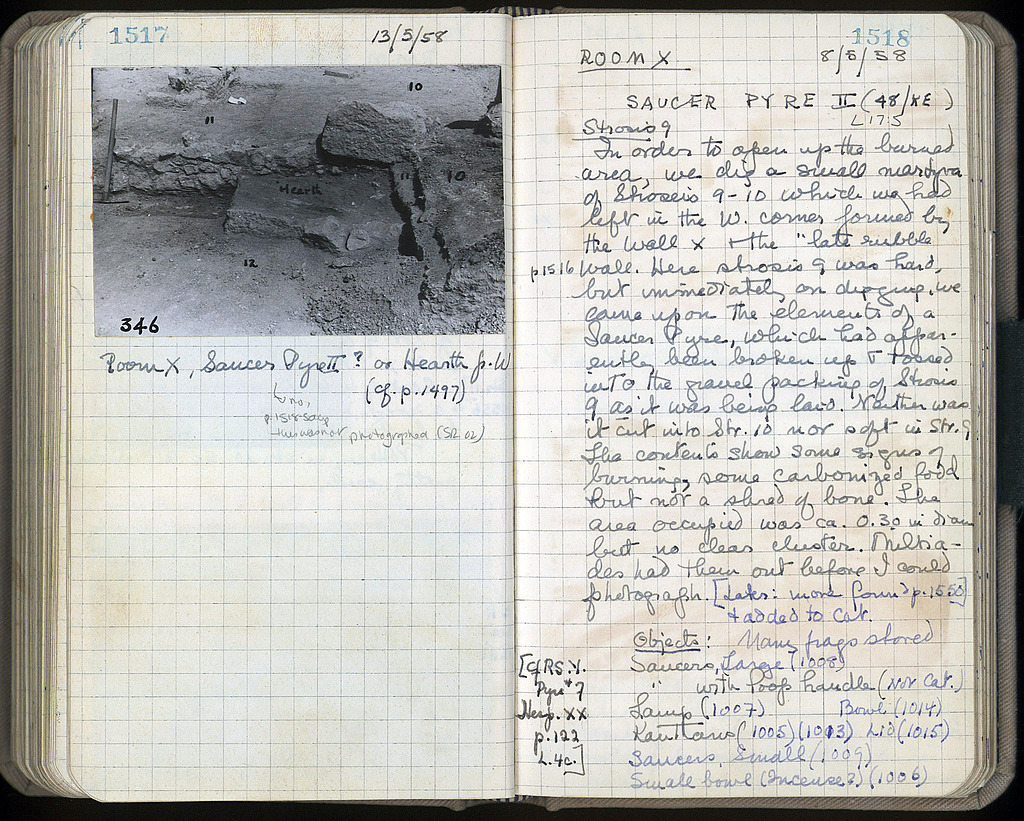 1517
13/5/58
10
11
Hearth
11
10
12
346
Room X, Saucer Pyre II ? or Hearth p. W
(cf. p. 1497)
no,
p. 1518 says
this was not photographed (SR 02)
1518
ROOM X
8/5/58
SAUCER PYRE II (48/ΚΕ)
L 17:5
Strosis 9
In order to open up the burned
area, we dig a small martyra
of Stroseis 9-10 which we had
left in the W. corner formed by
the Wall X + the "late rubble
p 1516 wall. Here strosis 9 was hard,
but immediately on digging, we
came upon the elements of a
Saucer Pyre, which had appar-
ently been broken up + tossed
into the gravel packing of Strosis
9 as it was being laid. Neither was
it cut into Str. 10 nor soft in Str. 9
The contents show some signs of
burning, some carbonized food
but not a shred of bone. The
area occupied was ca. 0.30 in diam
but no clear cluster. Miltia-
des had them out before I could
photograph. [Later: more found p. 1550]
+ added to Cat.
Objects: Many frags stored
Saucers, Large (1008)
" with loop handle (Not Cat.)
Lamp (1007) Bowl (1014)
Kantharos (1005) (1013) Lid (1015)
Saucers, Small (1009)
Small bowl (Incense?) (1006)
[cf RS. Y.
Pyre #7
Hesp. XX
p. 122
L. 4c.]